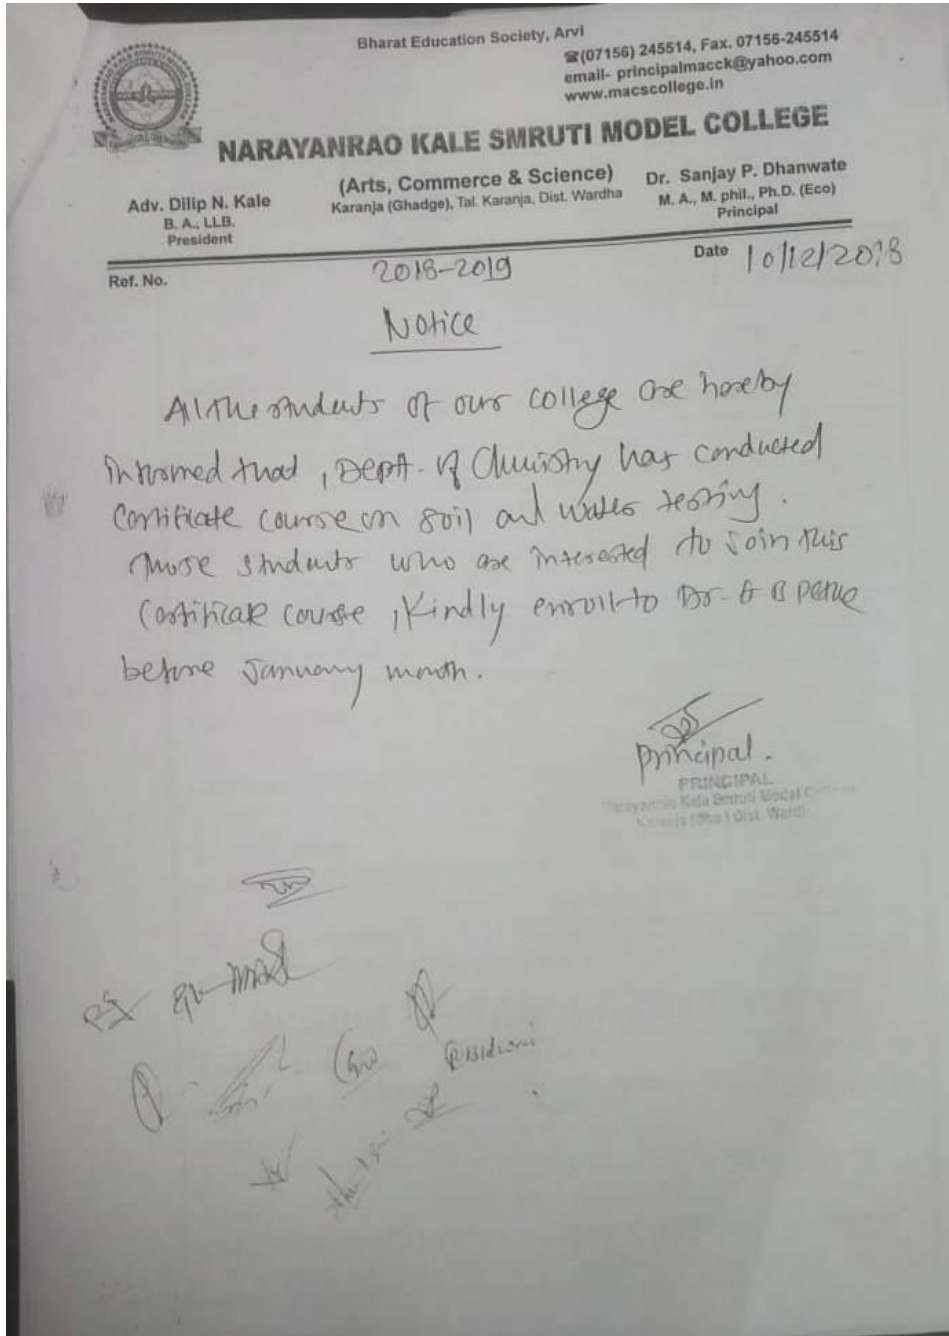 Bharat Education Society, Arvi
☎(07156) 245514, Fax. 07156-245514
email- principalmacck@yahoo.com
www.macscollege.in
NARAYANRAO KALE SMRUTI MODEL COLLEGE
(Arts, Commerce & Science)
Karanja (Ghadge), Tal. Karanja, Dist. Wardha
Adv. Dilip N. Kale
B. A., LLB.
President
Dr. Sanjay P. Dhanwate
M. A., M. phil., Ph.D. (Eco)
Principal
Ref. No.
2018-2019
Date 10/12/2018
Notice
All the students of our college are hereby
informed that , Dept. of Chemistry has conducted
Certificate course on soil and water testing .
Those students who are interested to Join this
Certificate course , Kindly enroll to Dr. B
before January month.
Principal.
PRINCIPAL
Narayanrao Kale Smruti Model
Karanja Dist. Wardh